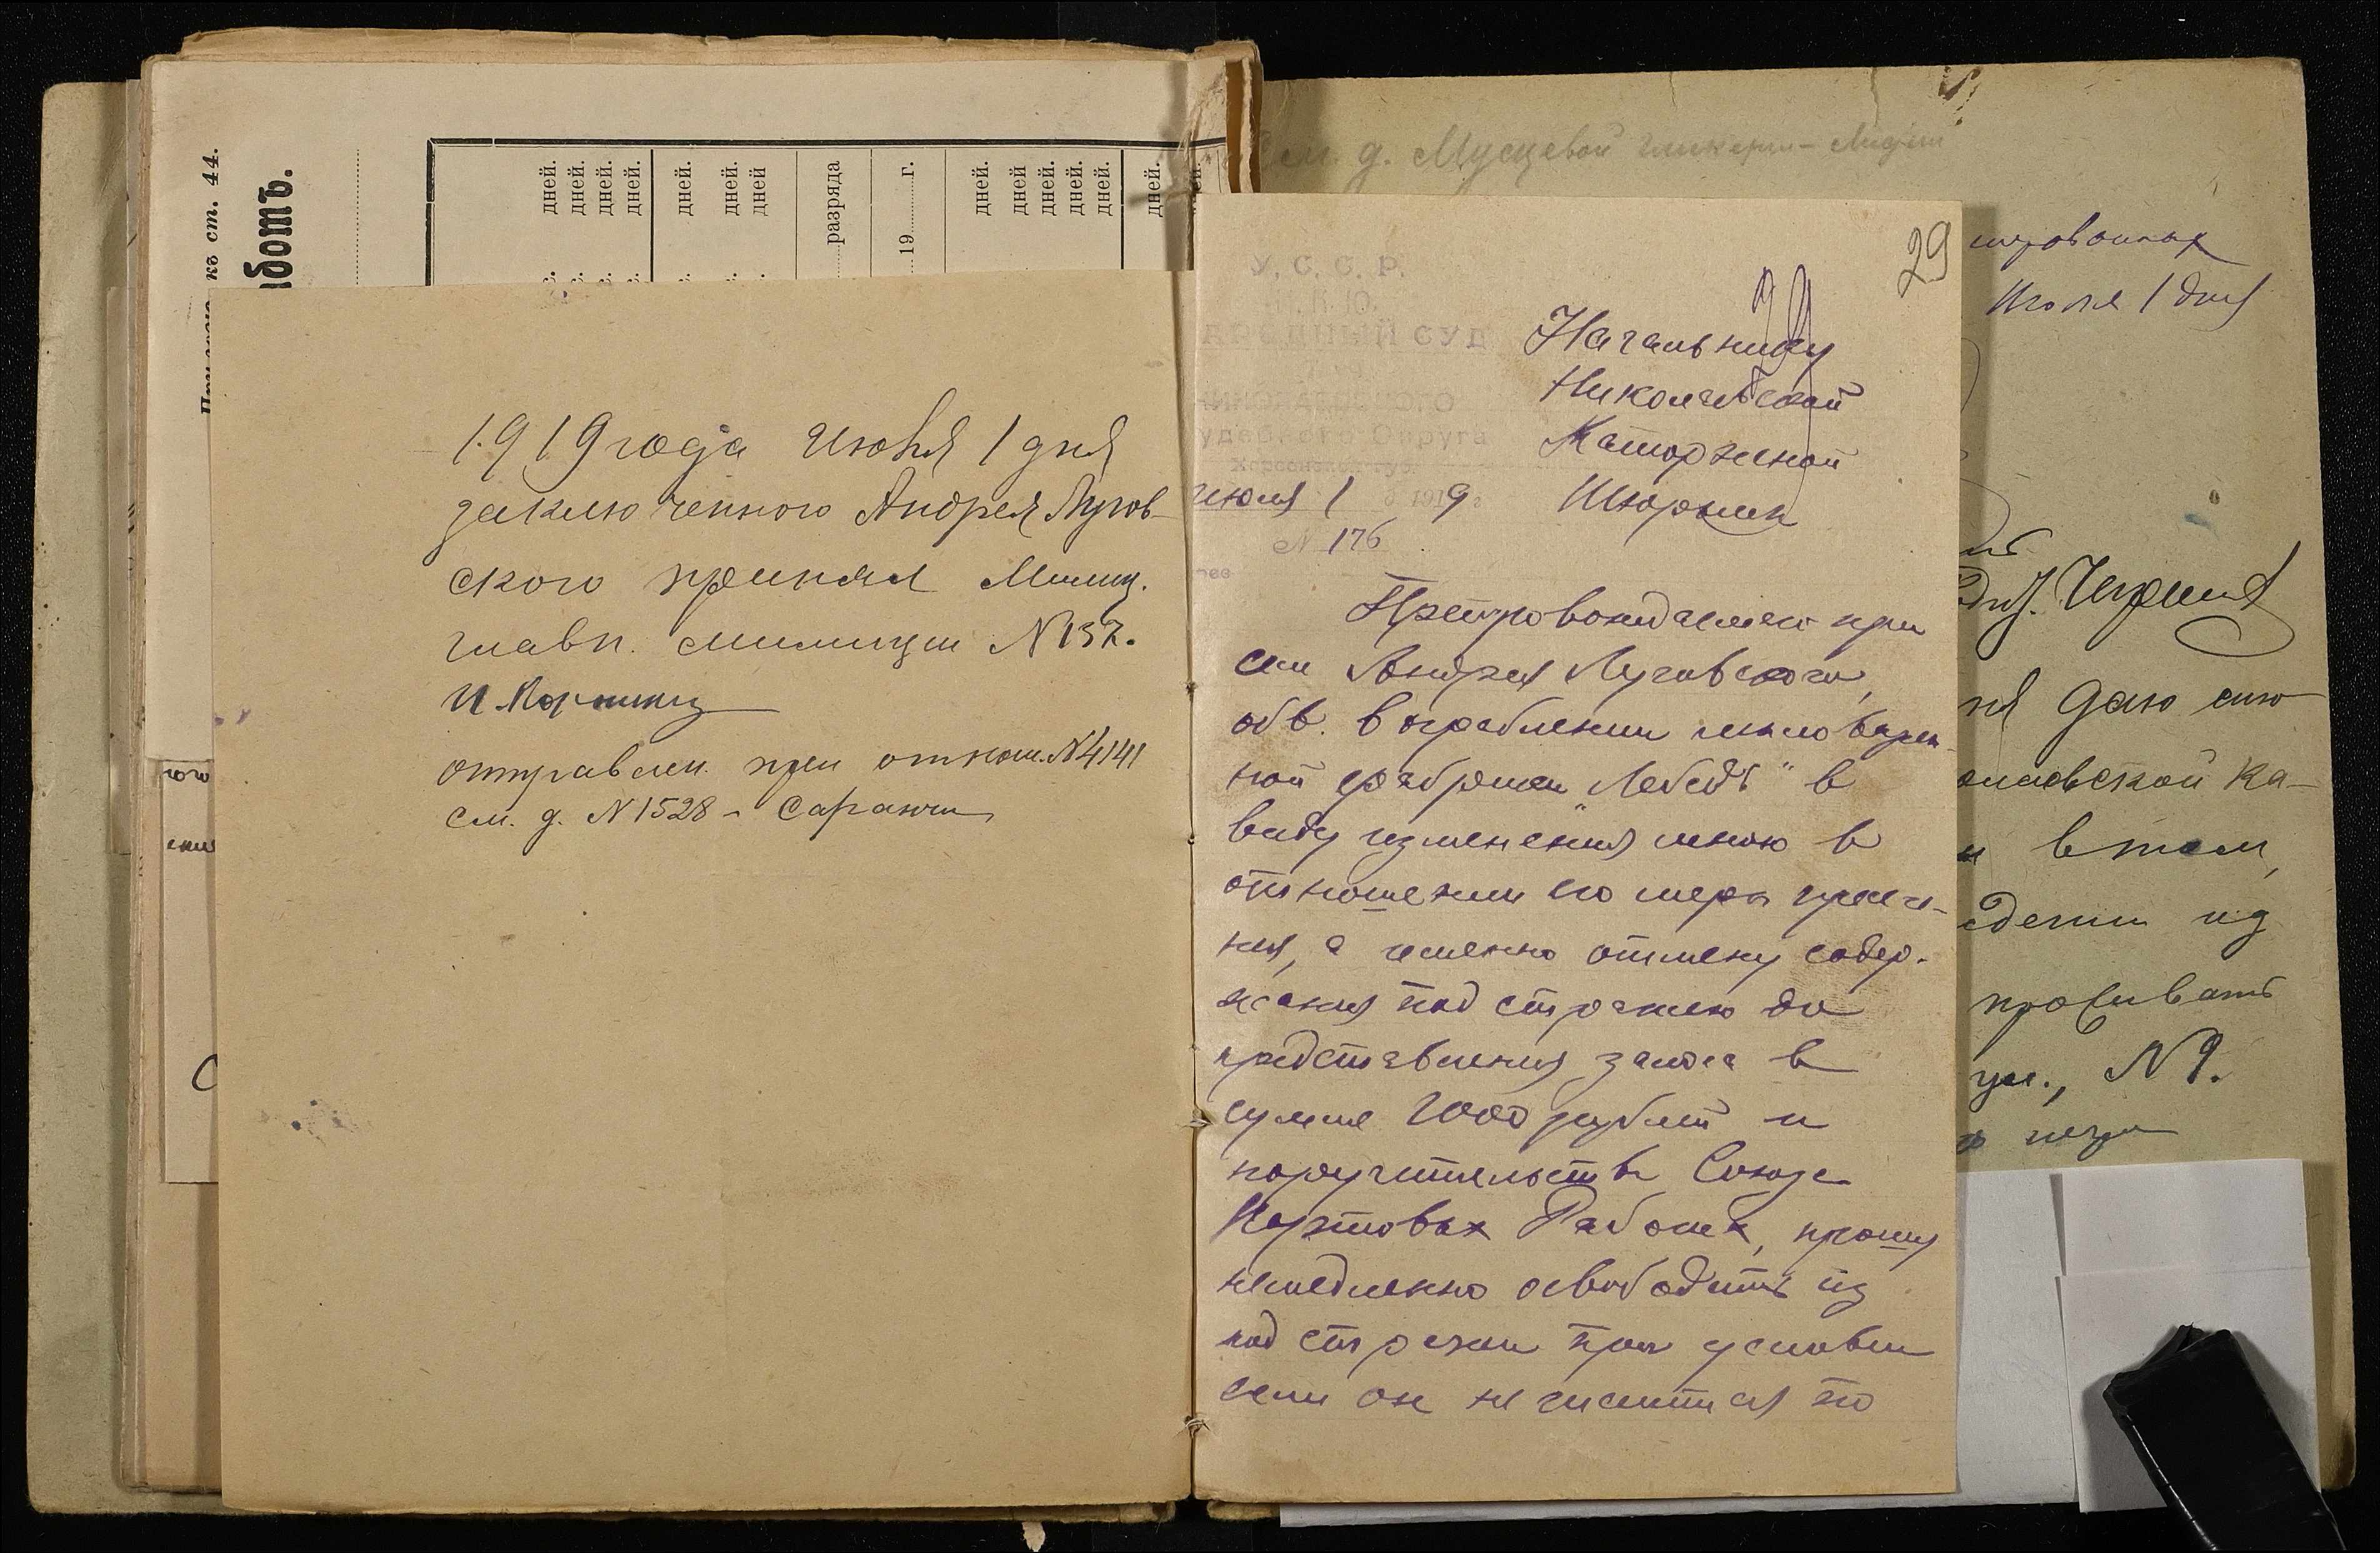 къ ст. 44.
дней.
дней.
дней.
дней.
дней.
дней.
дней
разряда
19 г.
дней.
дней
дней.
дней.
дней.
дней.
1919 года Июня 1 дня
заключенного Андрея Лугов-
ского принял Милиц.
главн. милиции N 137.
отправлен. при отнош. N 4141
см. д. N 1528 -
29
У. С. С. Р.
Н. К. Ю.
СУД
удебного Округа
Июня 1 1919 г
N 176
Начальнику
Николаевской
Каторжной
Тюрьмы
Препровождаемого при
сем Андрея Луговского,
обв. в ограблении мыловарен-
ной фабрики „Лебедь" в
виду изменения мною в
отношении его меры пресече-
ния, а именно отмену содер-
жания под стражею до
представления залога в
сумме 2000 рублей и
поручительства Союза
Портовых Рабочих, прошу
немедленно освободить из
под стражи при условии
если он не числится по
см. д.
Июня 1 дня
ня даю сию
Ка-
в том,
из
проживать
ул., N 9.